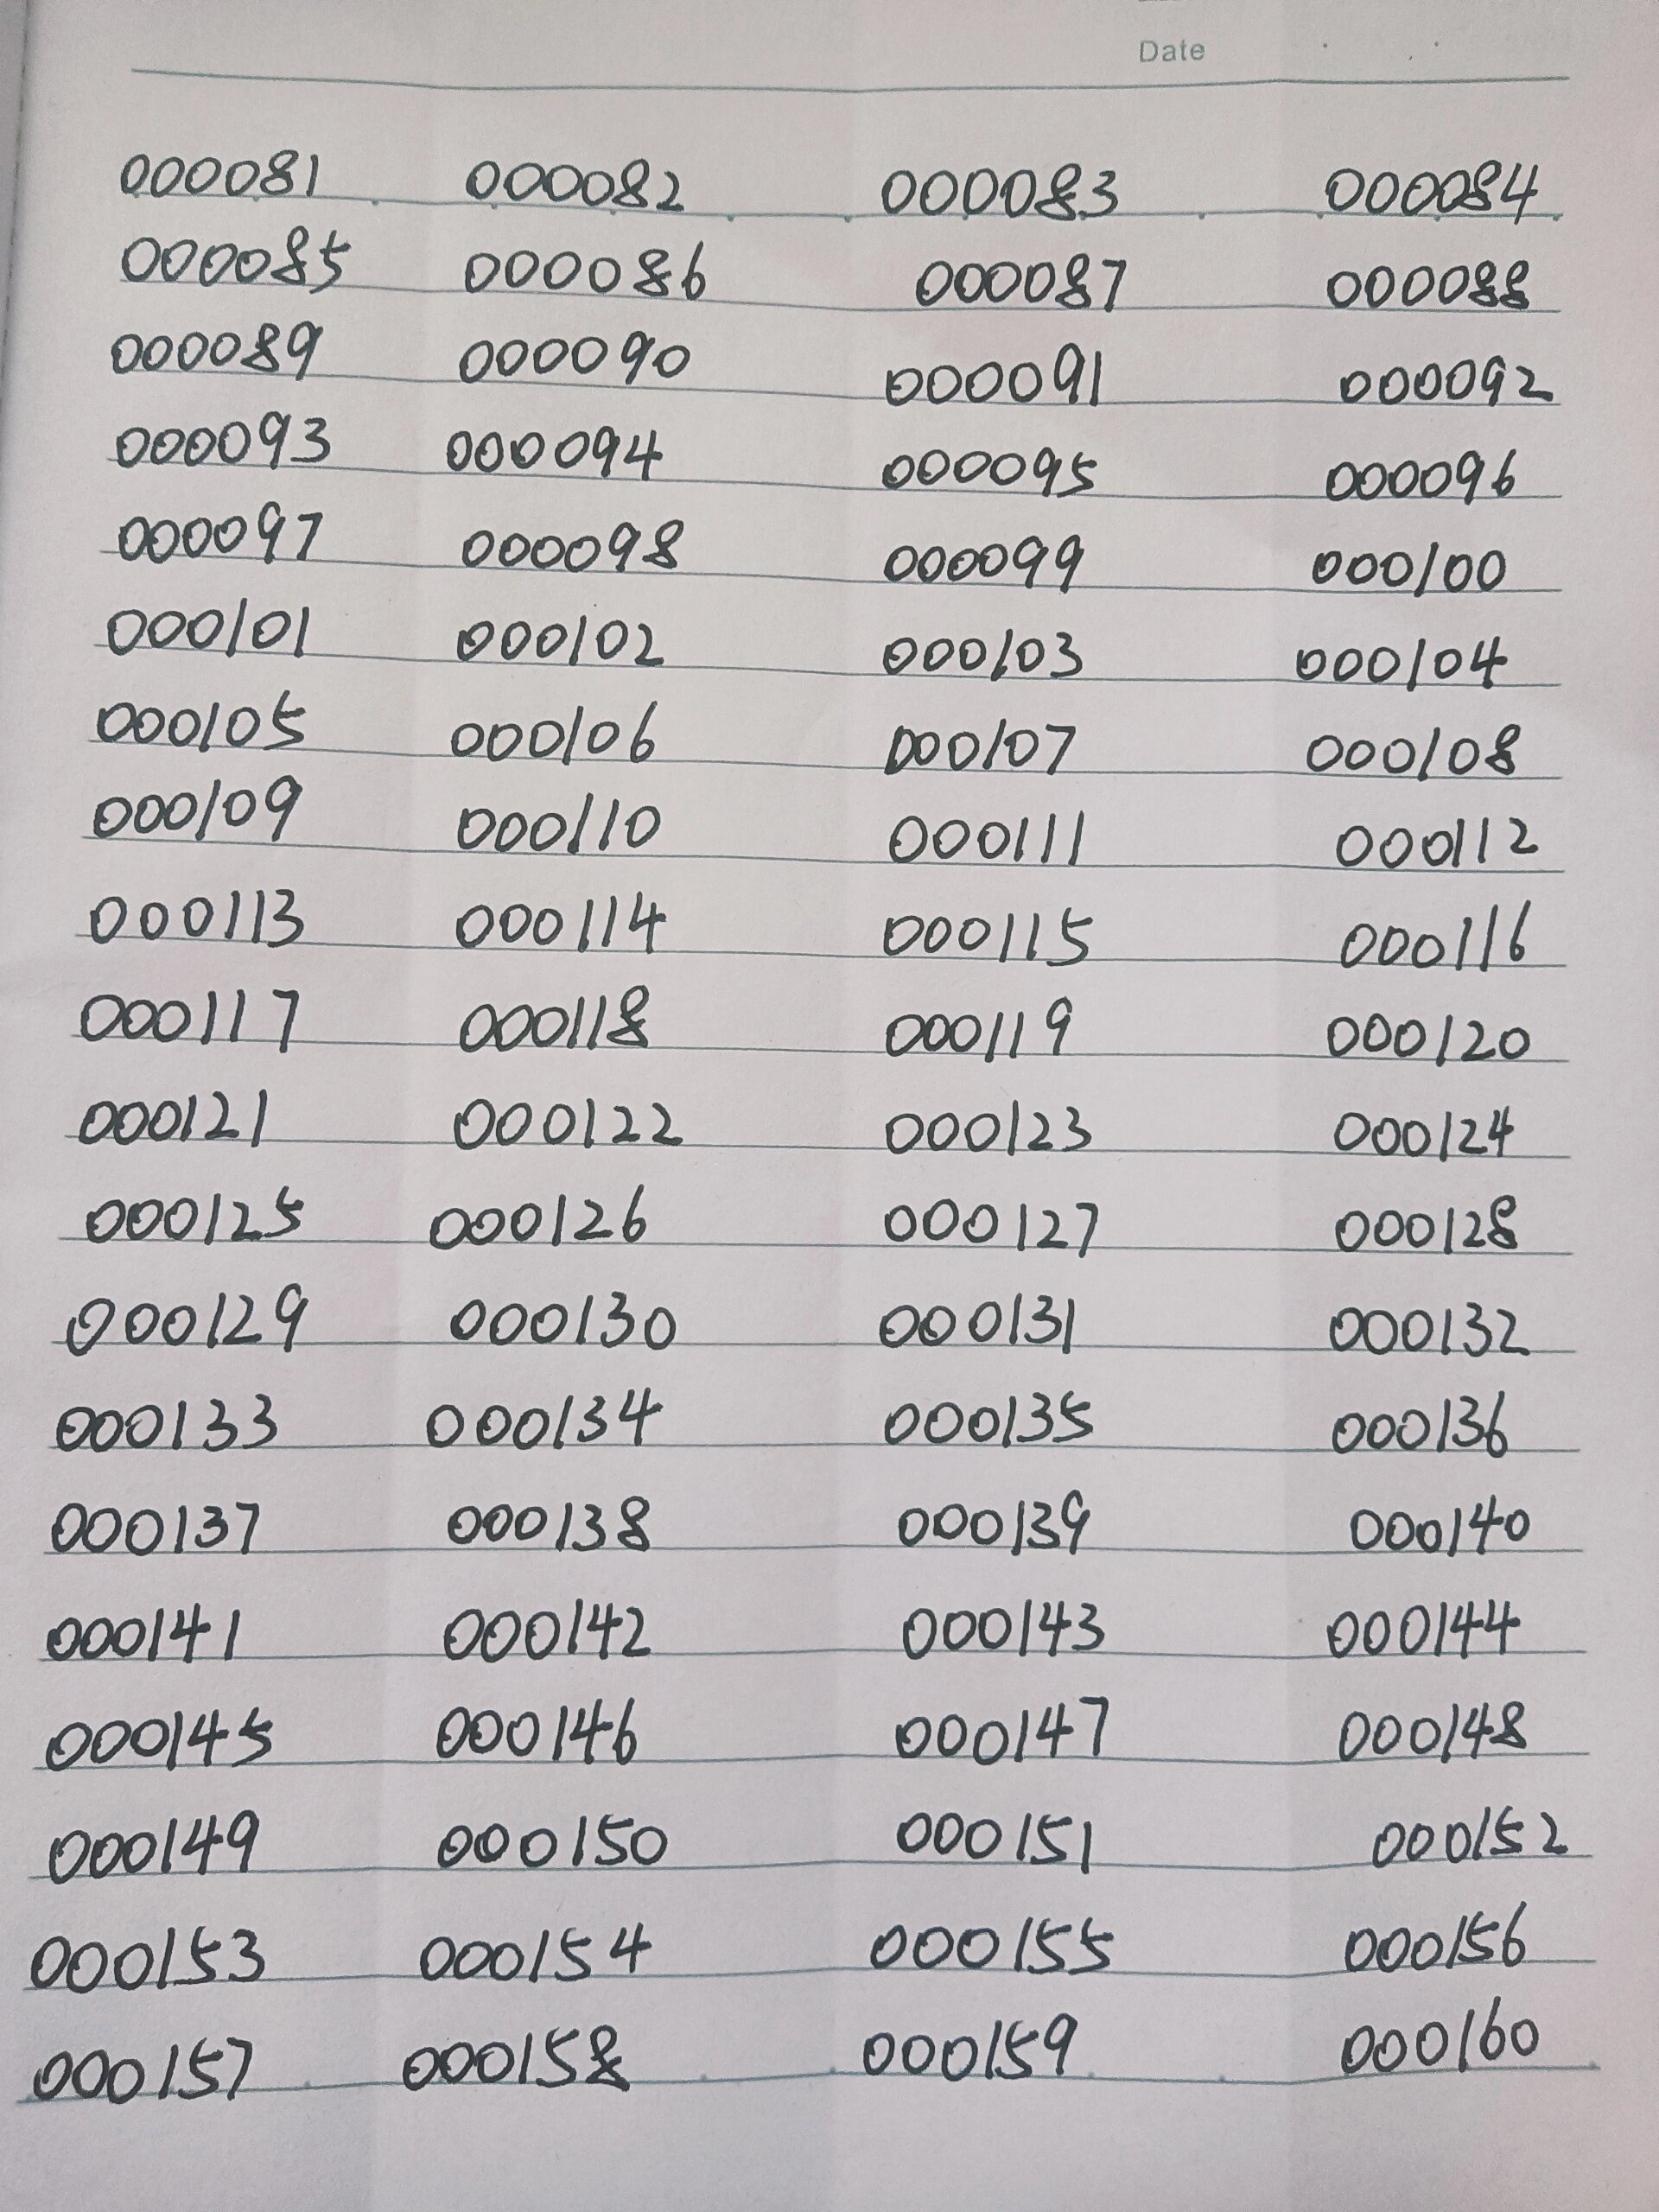 Date
000081 000082 000083 000084
000085 000086 000087 000088
000089 000090 000091 000092
000093 000094 000095 000096
000097 000098 000099 000100
000101 000102 000103 000104
000105 000106 000107 000108
000109 000110 000111 000112
000113 000114 000115 000116
000117 000118 000119 000120
000121 000122 000123 000124
000125 000126 000127 000128
000129 000130 000131 000132
000133 000134 000135 000136
000137 000138 000139 000140
000141 000142 000143 000144
000145 000146 000147 000148
000149 000150 000151 000152
000153 000154 000155 000156
000157 000158 000159 000160